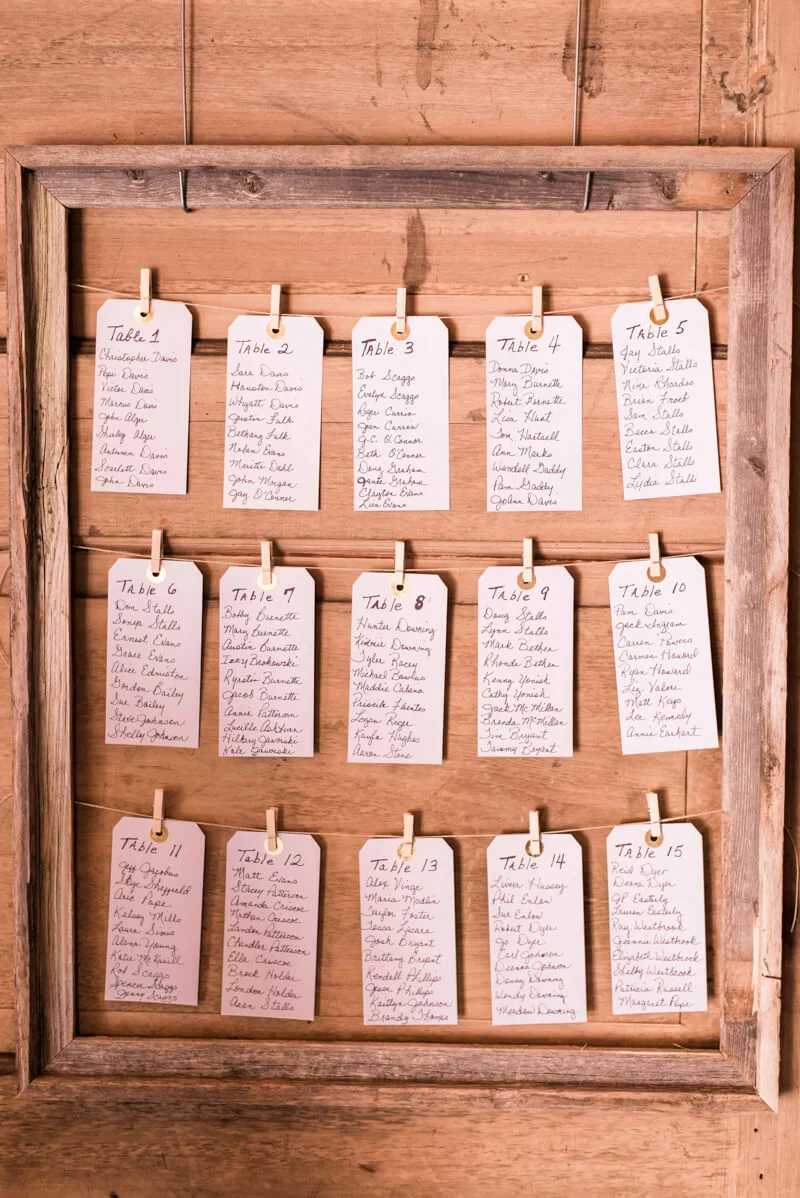 Table 1
Christopher Davis
Pepi Davis
Victor Davis
Marcus Davis
John Alger
Shirley Alger
Autumn Davis
Scarlett Davis
John Davis
Table 2
Sara Davis
Houston Davis
Whyatt Davis
Justin Fulk
Bethany Fulk
Nolan Evans
Meritte Dehl
John Morgan
Jay O'Connor
Table 3
Bob Scaggs
Evelyn Scaggs
Roger Currin
Jean Curren
J.C. O'Connor
Beth O'Conner
Doug Graham
Janie Graham
Clayton Evans
Lisa Evans
Table 4
Donna Davis
Mary Burnette
Robert Burnette
Lisa Hunt
Tom Hartsell
Ann Marks
Wendell Gaddy
Pam Gaddy
JoAnn Davis
Table 5
Jay Stalls
Victoria Stalls
Nina Rhoades
Brian Froeb
Sam Stalls
Becca Stalls
Easton Stalls
Clara Stalls
Lydia Stalls
Table 6
Don Stalls
Sonya Stalls
Ernest Evans
Grace Evans
Alice Edmiston
Gordon Bailey
Sue Bailey
Steve Johnson
Shelby Johnson
Table 7
Bobby Burnette
Mary Burnette
Austin Burnette
Izzy Brokowski
Kyrstin Burnette
Jacob Burnette
Annie Patterson
Lucille Ashburn
Hilary Jaworski
Kale Jaworski
Table 8
Hunter Downing
Kimmie Downing
Tyler Kacey
Michael Bowlus
Maddie Cabana
Priscila Fuentes
Logan Roger
Kayla Hughes
Aaron Stone
Table 9
Doug Stalls
Lynn Stalls
Mark Bethen
Rhonda Bethen
Kenny Yonish
Cathy Yonish
Jack McMillan
Brenda McMillan
Tim Bryant
Tammy Bryant
Table 10
Pam Davis
Jack Ingram
Carren Powers
Carmen Howard
Ryan Howard
Liz Valere
Matt Keys
Lee Kennedy
Annie Earhart
Table 11
Jeff Jacobus
Skye Sheffield
Aric Pape
Kelsey Mills
Laura Simis
Alana Young
Katie McCaskill
Rob Scaggs
Spencer Scaggs
Jenny Scaggs
Table 12
Matt Evans
Stacey Patterson
Amanda Criscoe
Nathan Criscoe
Landon Patterson
Chandler Patterson
Ella Criscoe
Brock Holder
London Holder
Aran Stalls
Table 13
Alex Vinge
Maria Modlin
Taylor Foster
Tessa Lacara
Josh Bryant
Brittany Bryant
Kendall Phillips
Jesse Phillips
Kaitlyn Johnson
Brandy Thomas
Table 14
Livia Hussey
Phil Enlow
Sue Enlow
Robert Dyer
Jo Dyer
Earl Johnson
Deanna Johnson
Danny Downing
Wendy Downing
Meadow Downing
Table 15
Reid Dyer
Deana Dyer
JP Easterly
Lauren Easterly
Ray Westbrook
Jeannie Westbrook
Elizabeth Westbrook
Shelby Westbrook
Patricia Russell
Margaret Pope